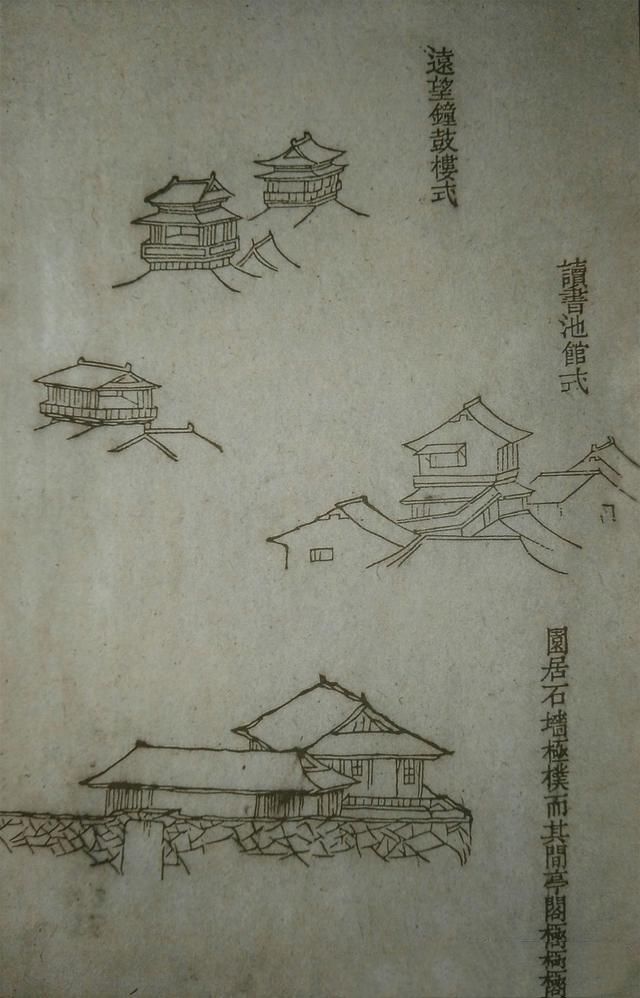 遠望鐘鼓樓式
讀書池館式
園居石墻極樸而其間亭閣極極極